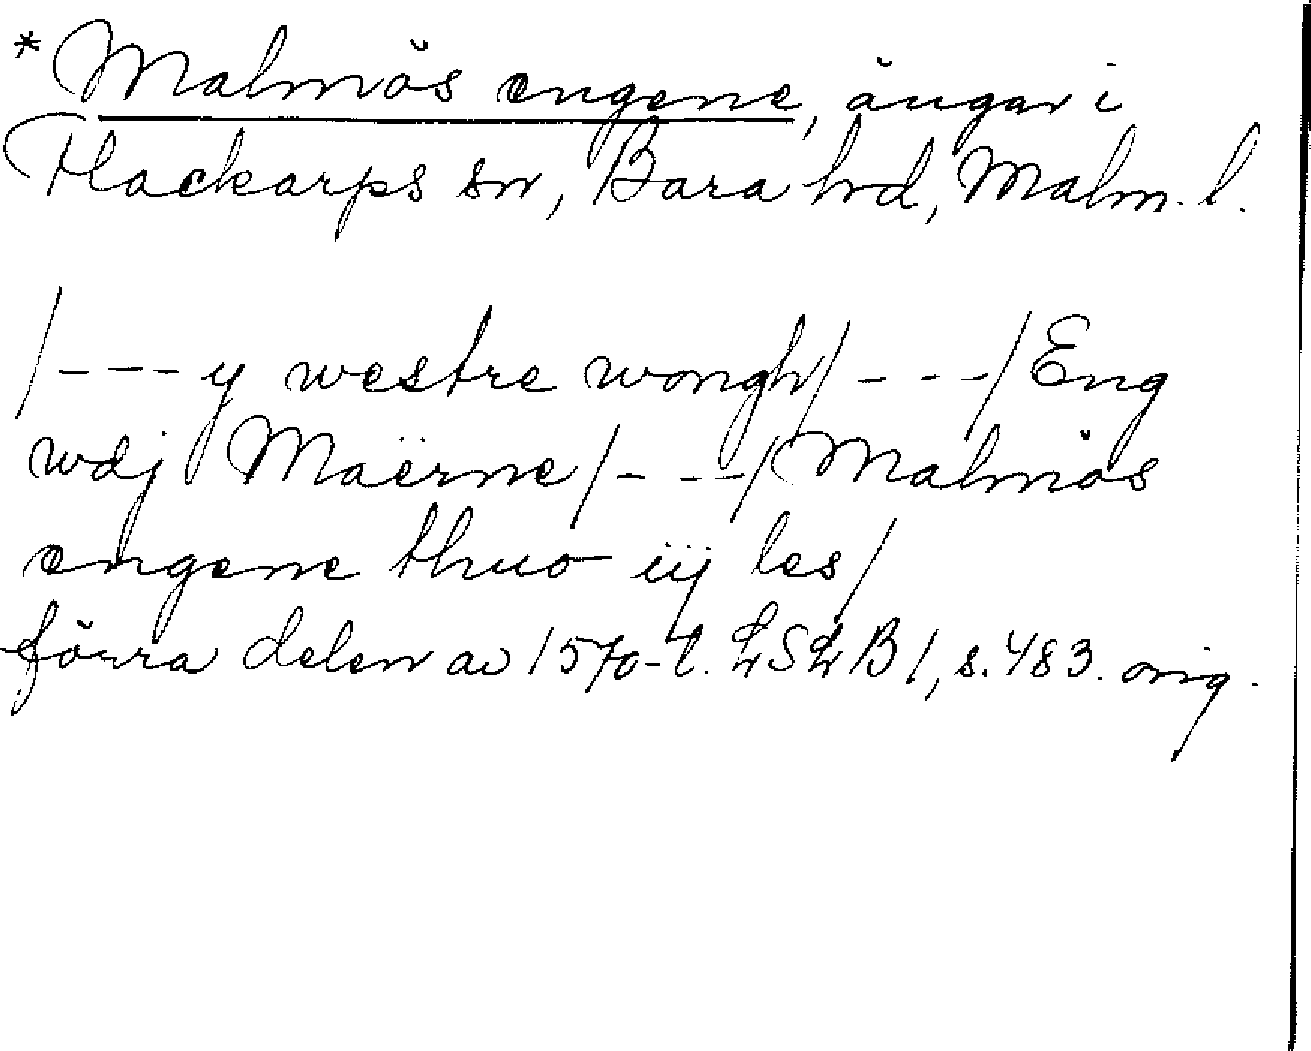 *Malmös engene, ängar i
Flackarps sn, Bara hd, Malm. l.
/---y westre wongh/---/Eng
wdj Maërne/---/Malmös
engene thuo iij les/
förra delen av 1570-t. LSLB 1, s. 483. orig.